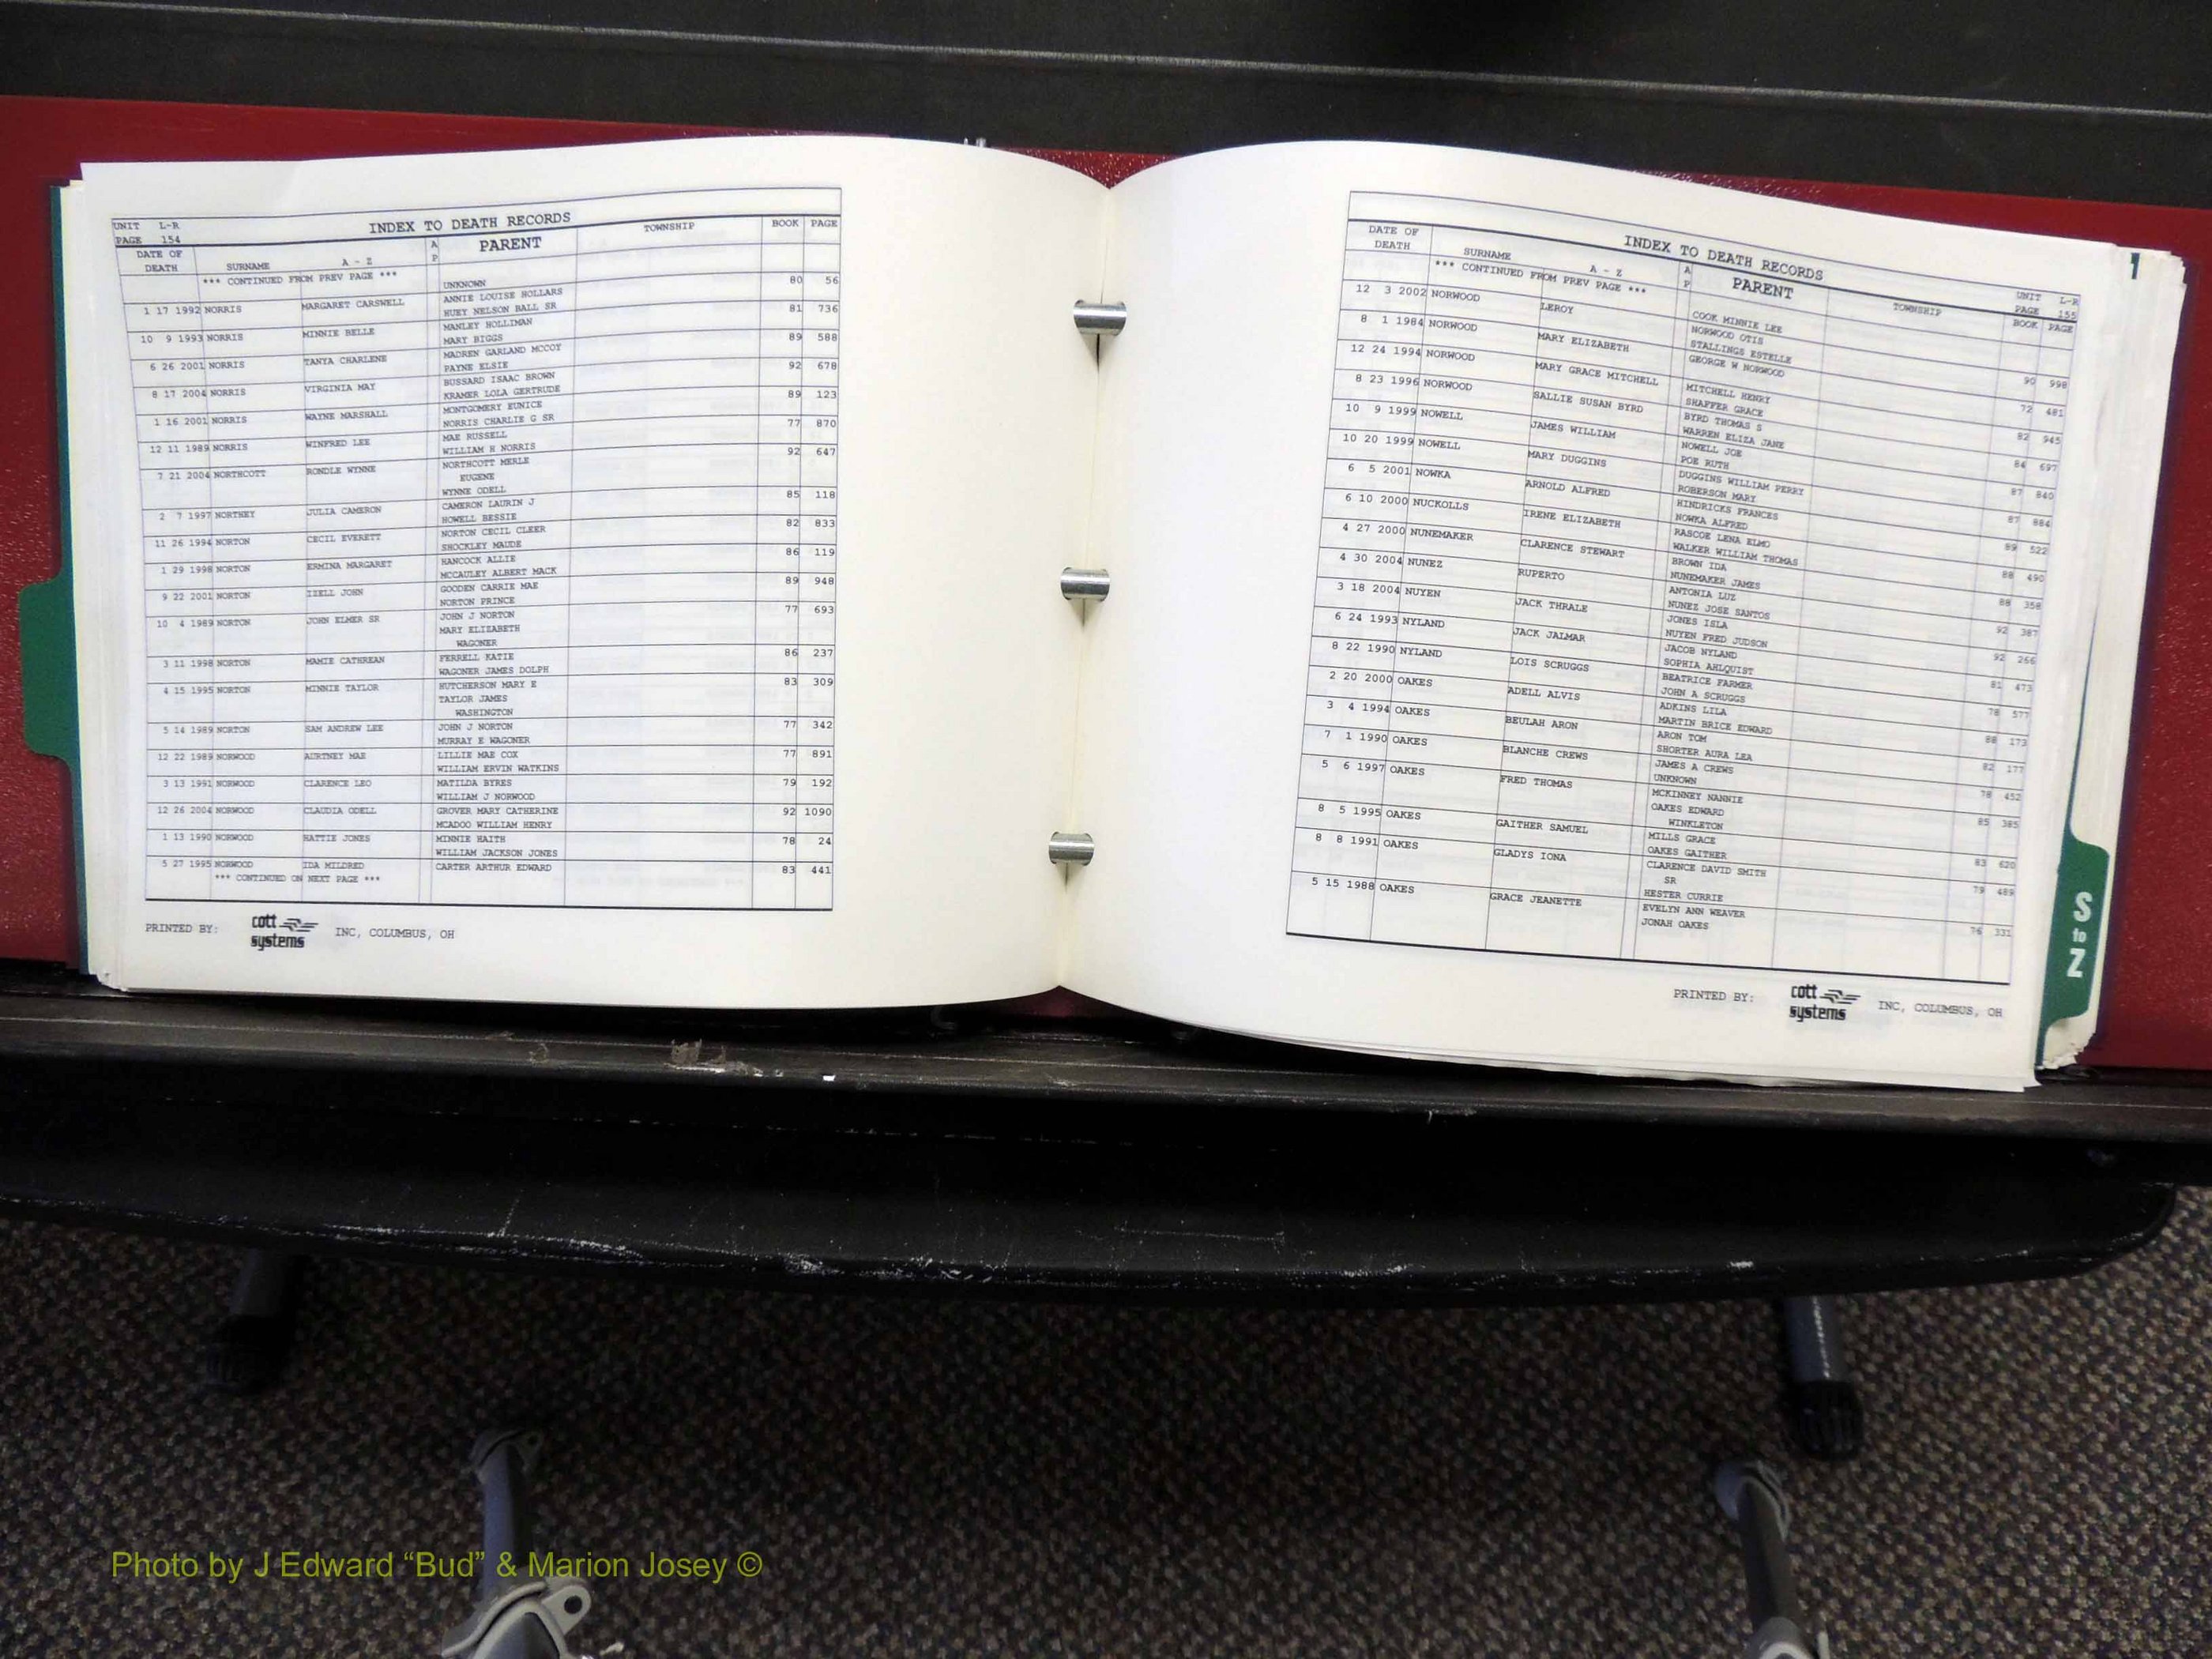 UNIT L-R INDEX TO DEATH RECORDS
PAGE 154
DATE OF DEATH SURNAME A - Z A P PARENT TOWNSHIP BOOK PAGE
*** CONTINUED FROM PREV PAGE *** UNKNOWN 80 56
ANNIE LOUISE HOLLARS
1 17 1992 NORRIS MARGARET CARSWELL HUEY NELSON BALL SR 81 736
MANLEY HOLLIMAN
10 9 1993 NORRIS MINNIE BELLE MARY BIGGS 89 588
MADREN GARLAND MCCOY
6 26 2001 NORRIS TANYA CHARLENE PAYNE ELSIE 92 678
BUSSARD ISAAC BROWN
8 17 2004 NORRIS VIRGINIA MAY KRAMER LOLA GERTRUDE 89 123
MONTGOMERY EUNICE
1 16 2001 NORRIS WAYNE MARSHALL NORRIS CHARLIE G SR 77 870
MAE RUSSELL
12 11 1989 NORRIS WINFRED LEE WILLIAM H NORRIS 92 647
NORTHCOTT MERLE
7 21 2004 NORTHCOTT RONDLE WYNNE EUGENE
WYNNE ODELL 85 118
CAMERON LAURIN J
2 7 1997 NORTHEY JULIA CAMERON HOWELL BESSIE 82 833
NORTON CECIL CLEER
11 26 1994 NORTON CECIL EVERETT SHOCKLEY MAUDE 86 119
HANCOCK ALLIE
1 29 1998 NORTON ERMINA MARGARET MCCAULEY ALBERT MACK 89 948
GOODEN CARRIE MAE
9 22 2001 NORTON IZELL JOHN NORTON PRINCE 77 693
10 4 1989 NORTON JOHN ELMER SR JOHN J NORTON
MARY ELIZABETH
WAGONER 86 237
3 11 1998 NORTON MAMIE CATHREAN FERRELL KATIE
WAGONER JAMES DOLPH 83 309
4 15 1995 NORTON MINNIE TAYLOR HUTCHERSON MARY E
TAYLOR JAMES
WASHINGTON
5 14 1989 NORTON SAM ANDREW LEE JOHN J NORTON 77 342
MURRAY E WAGONER
12 22 1989 NORWOOD AURTNEY MAE LILLIE MAE COX 77 891
WILLIAM ERVIN WATKINS
3 13 1991 NORWOOD CLARENCE LEO MATILDA BYRES 79 192
WILLIAM J NORWOOD
12 26 2004 NORWOOD CLAUDIA ODELL GROVER MARY CATHERINE 92 1090
MCADOO WILLIAM HENRY
1 13 1990 NORWOOD HATTIE JONES MINNIE HAITH 78 24
WILLIAM JACKSON JONES
5 27 1995 NORWOOD IDA MILDRED CARTER ARTHUR EDWARD 83 441
*** CONTINUED ON NEXT PAGE ***
PRINTED BY: cott systems INC, COLUMBUS, OH
INDEX TO DEATH RECORDS UNIT L-R
PAGE 155
DATE OF DEATH SURNAME A - Z A P PARENT TOWNSHIP BOOK PAGE
*** CONTINUED FROM PREV PAGE *** COOK MINNIE LEE
12 3 2002 NORWOOD LEROY NORWOOD OTIS 90 998
STALLINGS ESTELLE
8 1 1984 NORWOOD MARY ELIZABETH GEORGE W NORWOOD 72 481
12 24 1994 NORWOOD MARY GRACE MITCHELL MITCHELL HENRY 82 945
SHAFFER GRACE
8 23 1996 NORWOOD SALLIE SUSAN BYRD BYRD THOMAS S 84 697
WARREN ELIZA JANE
10 9 1999 NOWELL JAMES WILLIAM NOWELL JOE 87 840
POE RUTH
10 20 1999 NOWELL MARY DUGGINS DUGGINS WILLIAM PERRY 87 884
ROBERSON MARY
6 5 2001 NOWKA ARNOLD ALFRED HINDRICKS FRANCES 89 522
NOWKA ALFRED
6 10 2000 NUCKOLLS IRENE ELIZABETH RASCOE LENA ELMO 88 490
WALKER WILLIAM THOMAS
4 27 2000 NUNEMAKER CLARENCE STEWART BROWN IDA 88 358
NUNEMAKER JAMES
4 30 2004 NUNEZ RUPERTO ANTONIA LUZ 92 387
NUNEZ JOSE SANTOS
3 18 2004 NUYEN JACK THRALE JONES ISLA 92 266
NUYEN FRED JUDSON
6 24 1993 NYLAND JACK JALMAR JACOB NYLAND 81 473
SOPHIA AHLQUIST
8 22 1990 NYLAND LOIS SCRUGGS BEATRICE FARMER 78 577
JOHN A SCRUGGS
2 20 2000 OAKES ADELL ALVIS ADKINS LILA 88 173
MARTIN BRICE EDWARD
3 4 1994 OAKES BEULAH ARON ARON TOM 82 177
SHORTER AURA LEA
7 1 1990 OAKES BLANCHE CREWS JAMES A CREWS 78 452
UNKNOWN
5 6 1997 OAKES FRED THOMAS MCKINNEY NANNIE 85 385
OAKES EDWARD
WINKLETON
8 5 1995 OAKES GAITHER SAMUEL MILLS GRACE 83 620
OAKES GAITHER
8 8 1991 OAKES GLADYS IONA CLARENCE DAVID SMITH 79 489
SR
HESTER CURRIE
5 15 1988 OAKES GRACE JEANETTE EVELYN ANN WEAVER 76 331
JONAH OAKES
PRINTED BY: cott systems INC, COLUMBUS, OH
S to Z
Photo by J Edward “Bud” & Marion Josey ©